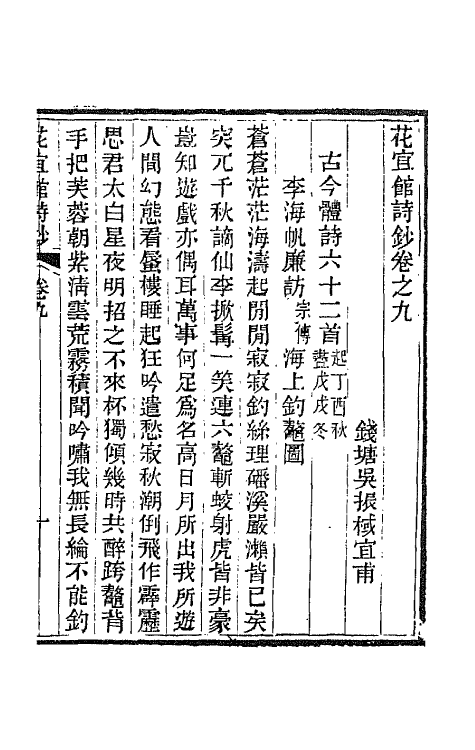 花宜館詩鈔卷之九
錢塘吳振棫宜甫
古今體詩六十二首起丁酉秋盡戊戌冬
李海帆廉訪宗傳海上釣鼇圖
蒼蒼茫茫海濤起閒閒寂寂釣絲理磻溪嚴瀨皆已矣
突兀千秋謫仙李掀髯一笑連六鼇斬蛟射虎皆非豪
豈知遊戲亦偶耳萬事何足為名高日月所出我所遊
人間幻態看蜃樓睡起狂吟遣愁寂秋潮倒飛作霹靂
思君太白星夜明招之不來杯獨傾幾時共醉跨鼇背
手把芙蓉朝紫清雲荒霧積聞吟嘯我無長綸不能釣
花宜館詩鈔 卷九 一